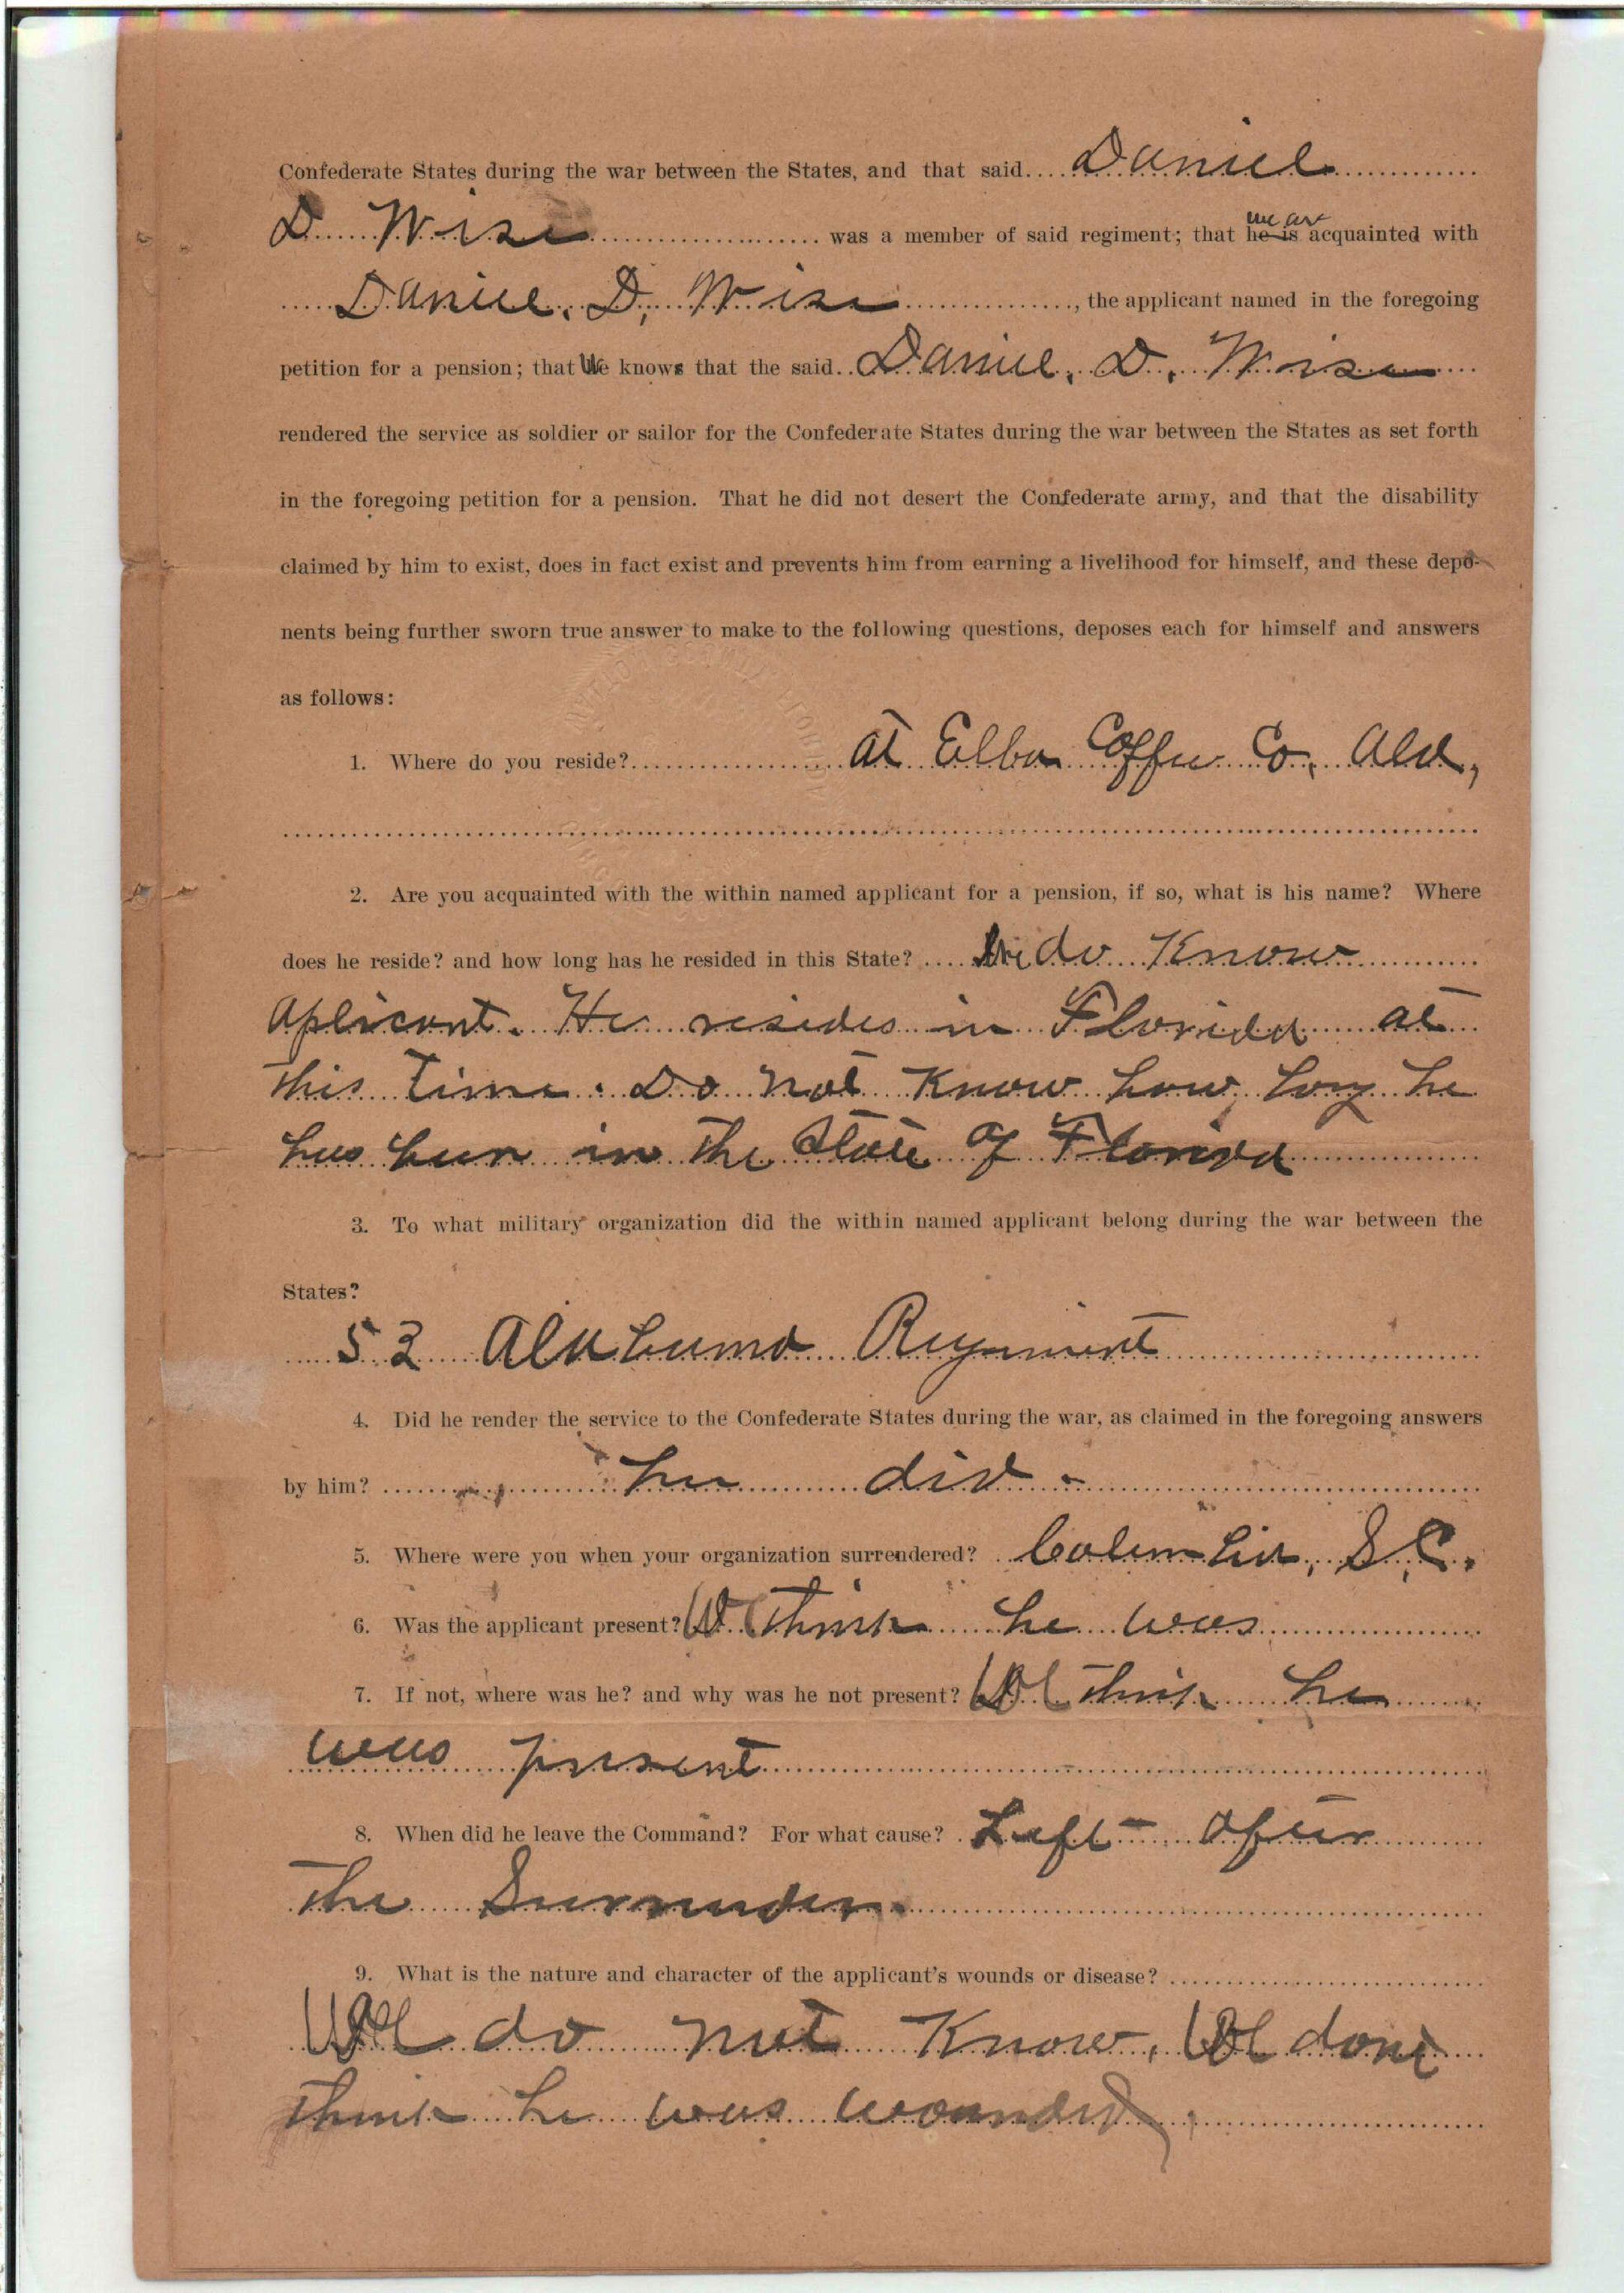 Confederate States during the war between the States, and that said Daniel
D Wise was a member of said regiment; that he is we are acquainted with
Daniel. D. Wise, the applicant named in the foregoing
petition for a pension; that We knows that the said Daniel. D. Wise
rendered the service as soldier or sailor for the Confederate States during the war between the States as set forth
in the foregoing petition for a pension. That he did not desert the Confederate army, and that the disability
claimed by him to exist, does in fact exist and prevents him from earning a livelihood for himself, and these depo-
nents being further sworn true answer to make to the following questions, deposes each for himself and answers
as follows:
1. Where do you reside? at Elba Coffee Co. Ala,
2. Are you acquainted with the within named applicant for a pension, if so, what is his name? Where
does he reside? and how long has he resided in this State? We do Know
aplicant. He resides in Florida at
this time. Do not Know how long he
has been in the State of Florida
3. To what military organization did the within named applicant belong during the war between the
States?
53 Alabama Regiment
4. Did he render the service to the Confederate States during the war, as claimed in the foregoing answers
by him? he did -
5. Where were you when your organization surrendered? Columbia, S.C.
6. Was the applicant present? We think he was
7. If not, where was he? and why was he not present? We think he
was present
8. When did he leave the Command? For what cause? Left after
the Surrender.
9. What is the nature and character of the applicant's wounds or disease?
We do not Know. We dont
think he was wounded.